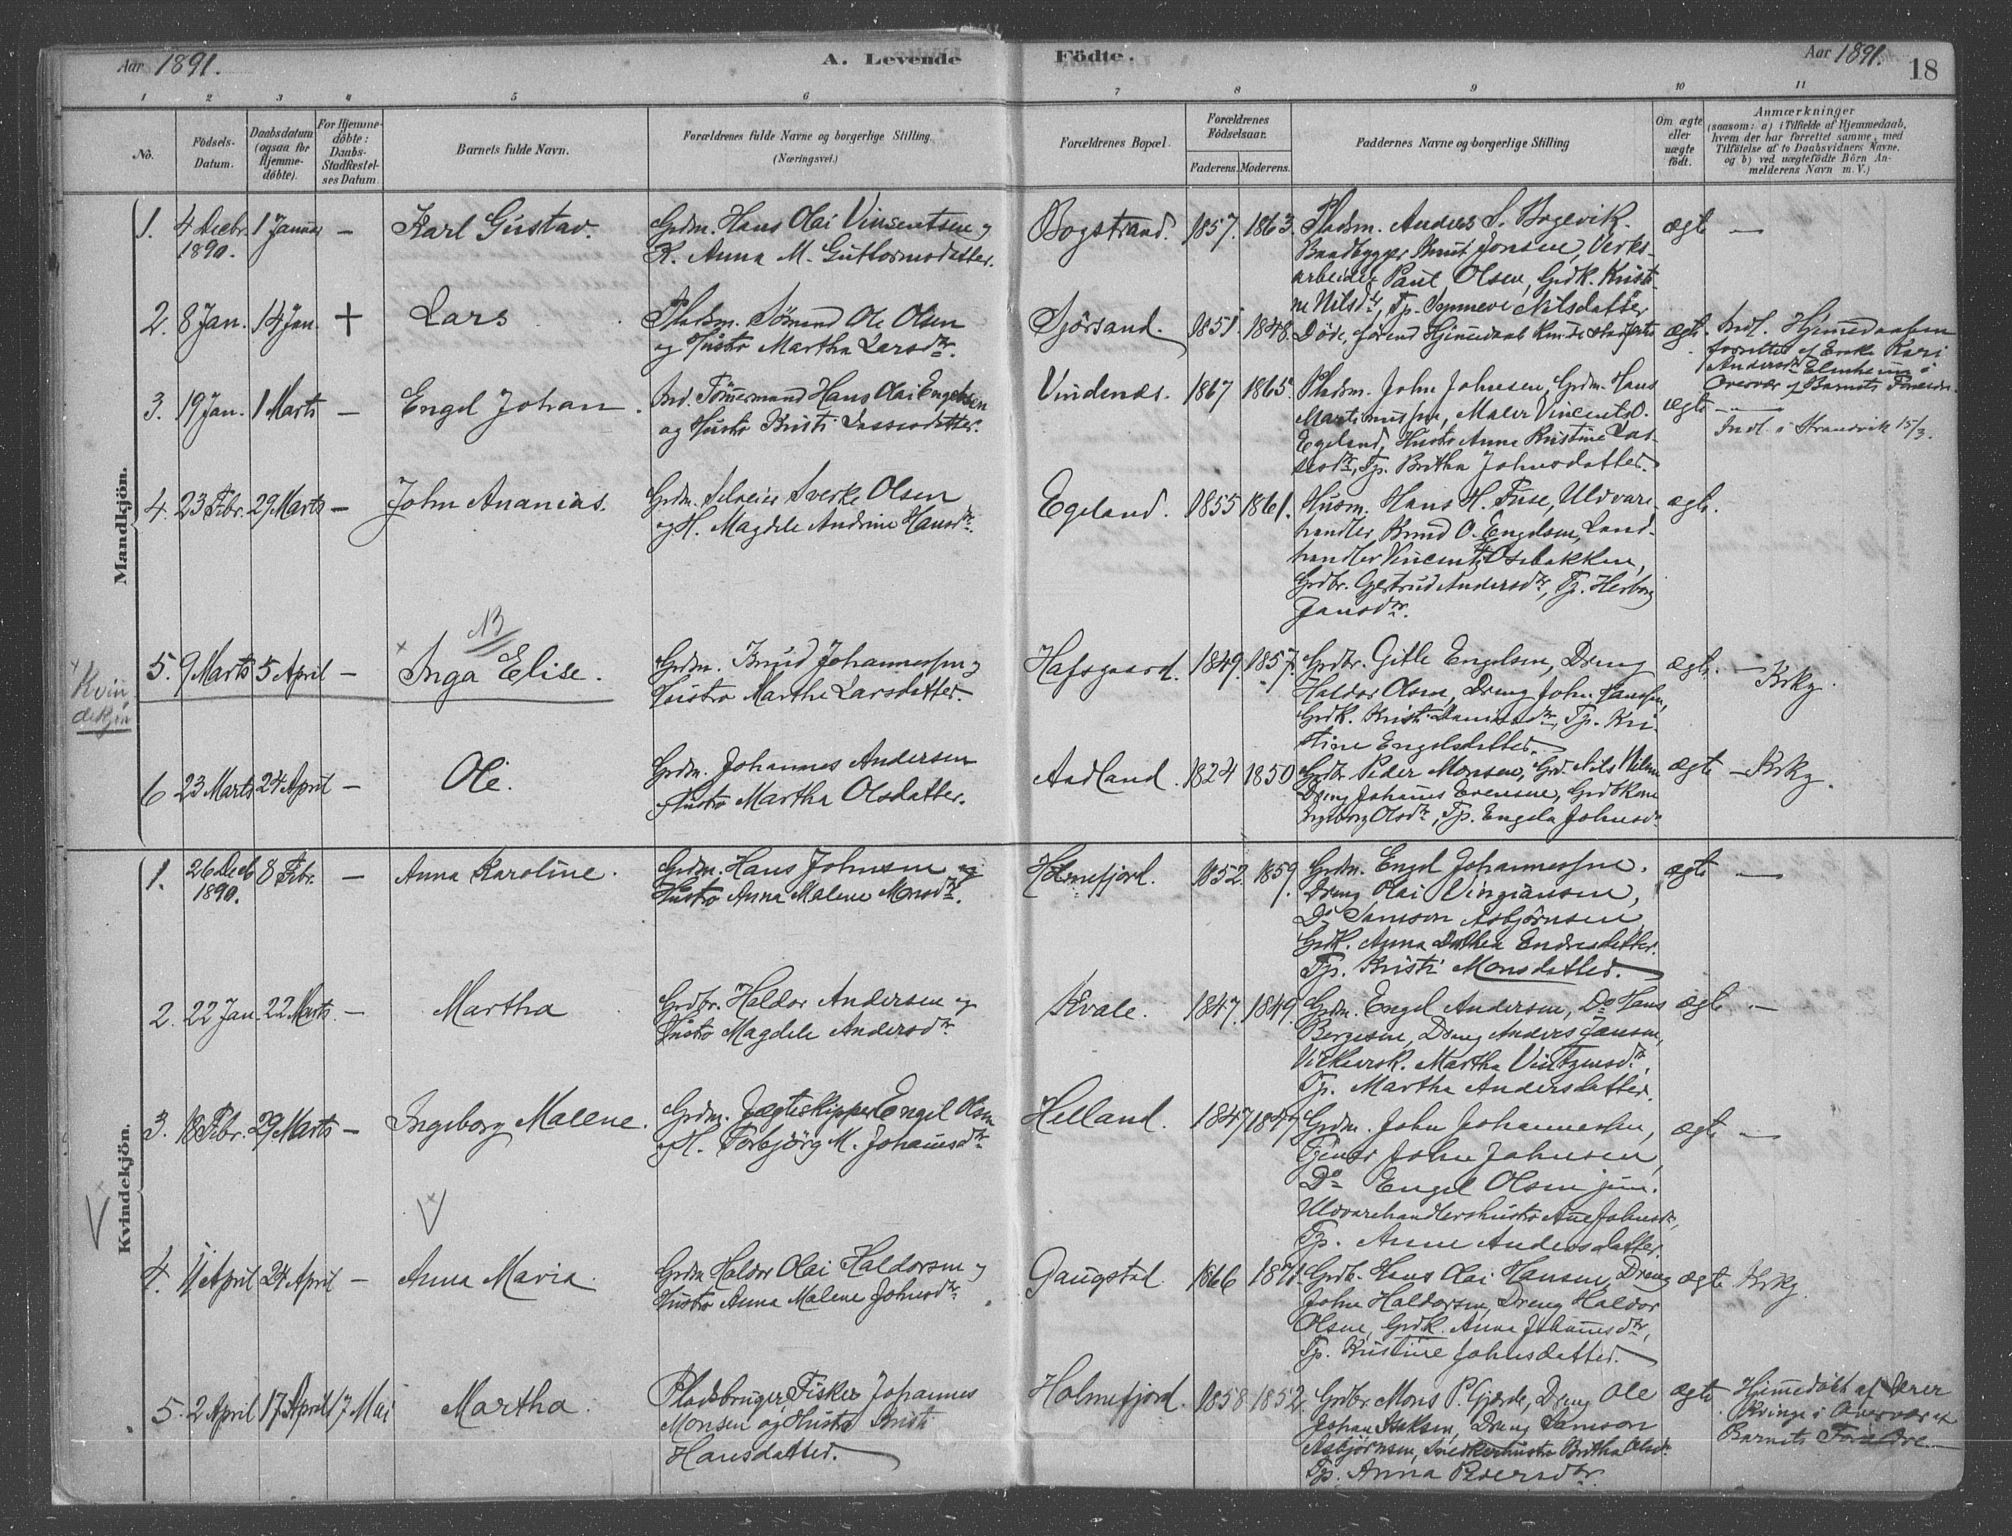 Aar 1891. A. Levende Födte. Aar 1891. 18
1 2 3 4 5 6 7 8 9 10 11
No.
Födsels-Datum.
Daabsdatum (ogsaa för Hjemme-döbte).
For Hjemme-döbte: Daabs-Stadfæstel-ses Datum.
Barnets fulde Navn.
Forældrenes fulde Navne og borgerlige Stilling. (Næringsvei.)
Forældrenes Bopæl.
Forældrenes Födselsaar.
Faderens. Moderens.
Faddernes Navne og borgerlige Stilling
Om ægte eller uægte födt.
Anmærkninger
(saasom: a) i Tilfælde af Hjemmedaab,
hvem der har forrettet samme, med
Tilföielse af to Daabsvidners Navne,
og b) ved uægtefödte Börn An-
melderens Navn m. V.)
Mandkjön.
1. 4 Decbr. 1890. 1 Januar — Karl Gustav.
Grdm. Hans Olai Vinsentsen og
K. Anna M. Guttormsdatter.
Bogstrand. 1857. 1863.
Pladsm. Anders S. Bogevik.
Baadbygger Knut Jonsen, Verks-
arbeider Paul Olsen, Grdk. Kristi-
ne Nilsdtr, Tp. Synneve Nilsdatter
ægte —
2. 8 Jan. 14 Jan. + Lars
Pladsm. Sömand Ole Olsen
og Hustro Martha Larsdtr.
Sjörsand. 1851 1848.
Döde, förend Hjemmedaab kunde stadfæstes
ægte.
Indl. Hjemmedaaben
forrettet af Enke Kari
Andersdtr Elnheim i
Overvær af Barnets Forældre.
3. 19 Jan. 1 Marts — Engel Johan.
Ind. Tömmermand Hans Olai Engelsen
og Hustro Kristi Lassesdatter.
Vindenæs. 1867 1865.
Pladsm. John Johnsen, Grdm. Hans
Martinussen, Maler Vincent O.
Egeland, Hustro Anna Kristine Las-
sesdtr, Tp. Britha Johnsdatter.
ægte —
Indl. i Strandvik 15/3.
4. 23 Febr. 29 Marts — John Ananias.
Grdm. Selveier Sverke Olsen
og H. Magdele Andrine Hansdtr.
Egeland. 1855 1861.
Husm. Hans H. Fuse, Uldvare-
handler Knud O. Engelsen, Land-
handler Vincent Osebakken,
Grdbr. Gjertrud Andersdtr, Tp. Herborg
Jansdtr.
ægte.
x Kvin
dekjön
NB
5. 9 Marts 5 April — x Inga Elise.
Grdm. Knud Johannessen og
Hustro Martha Larsdatter.
Hafsgaard. 1849. 1857.
Grdbr. Gitle Engelsen, Dreng
Haldor Olsen, Dreng John Hanssen,
Grdk. Kristi Danielsdtr, Tp. Kri-
stine Engelsdatter.
ægte. — Krkg.
6 23 Marts 24 April — Ole.
Grdm. Johannes Andersen
Hustro Martha Olsdatter.
Aadland. 1824 1850
Grdbr. Peder Monsen, Grd. Nils Nilsen
Dreng Johannes Evensen, Grdbkone
Ingeborg Olsdtr, Tp. Engela Johnsdtr
ægte — Krkg.
Kvindekjön.
1. 26 Decb 1890. 8 Febr. — Anna Karoline.
Grdm. Hans Johnsen og
Hustro Anna Malene Monsdtr.
Holmefjord. 1852. 1859.
Grdm. Engel Johannessen.
Dreng Olai Vingiansen,
Do Samson Asbjörnsen,
Grdk. Anna Dorthea Endresdatter.
Tp. Kristi Monsdatter.
ægte —
2. 22 Jan. 22 Marts. — Martha
Grdbr. Haldor Andersen og
Hustro Magdele Andersdtr.
Kvale. 1847. 1849.
Grdm. Engel Andersen, Do Hans
Bergesen, Dreng Anders Jansen,
Virkearsk. Martha Vintzensdtr,
Tp. Martha Andersdatter.
ægte —
3. 18 Febr. 29 Marts — Ingeborg Malene.
Grdm. Jægteskipper Engel Olsen
og H. Torbjörg M. Johannesdtr.
Helland. 1847 1847
Grdm. John Johannessen,
Tjener John Johnsen,
Do Engel Olsen jun.
Uldvarehandlershustro Ane Johnsdtr,
Tp. Anne Andersdatter.
ægte —
V
x V
4. 11 April 24 April — Anna Maria.
Grdm Haldor Olai Haldorsen og
Hustro Anna Malene Johnsdtr.
Gaugstad. 1866 1871.
Grdb. Hans Olai Hansen, Dreng
John Haldorsen, Dreng Haldor
Olsen, Grdk. Anna Johannesdtr,
Tp. Kristine Johnsdatter.
ægte Krkg.
5. 2 April 17 April 17 Mai Martha.
Pladsbruger, Fisker Johannes
Monsen og Hustro Kristi
Hansdatter.
Holmefjord. 1858 1852.
Grdbr. Mons P. Gjerde, Dreng Ole
Johan Isaksen, Dreng Samson
Asbjörnsen, Snedkerhustro Britha Olsdtr
Tp. Anna Pedersdtr.
ægte
Hjemmedöbt af Lærer
Kvinge i Overvær af
Barnets Forældre.